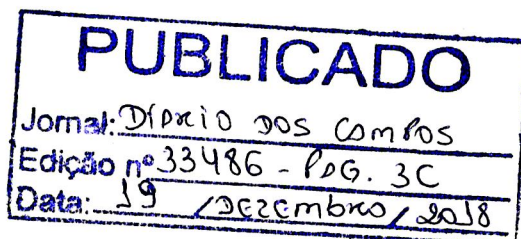 PUBLICADO
Jornal: DIÁRIO DOS CAMPOS
Edição nº 33486 - PÁG. 3C
Data: 19 / DEZEMBRO / 2018